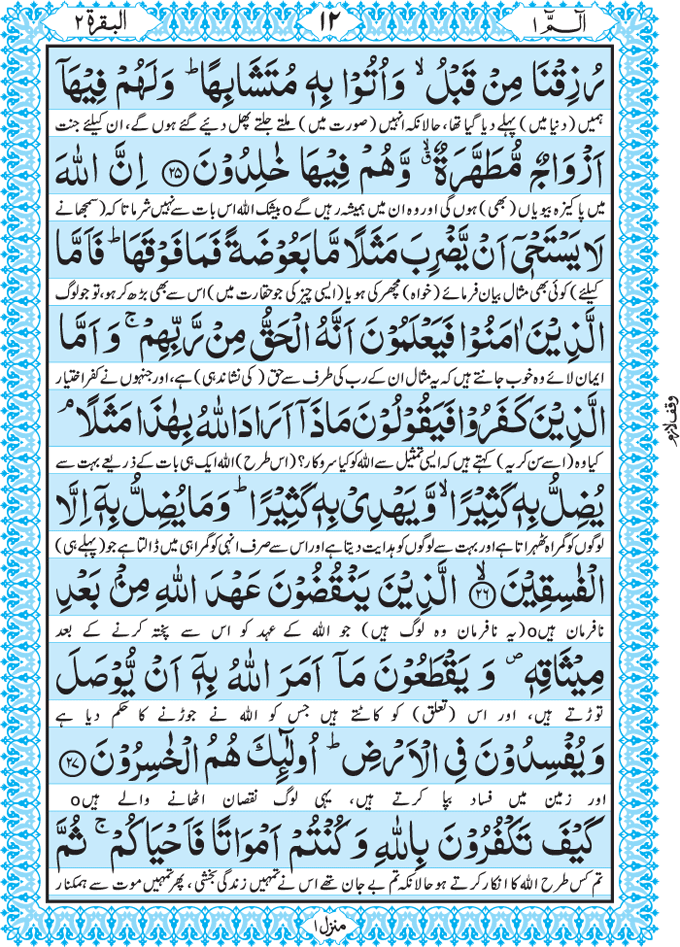 الٓمّٓ ١
١٢
البقرة ٢
رُزِقْنَا مِنْ قَبْلُ ۙ وَاُتُوْا بِهٖ مُتَشَابِهًا ؕ وَلَهُمْ فِيْهَاۤ
ہمیں (دنیا میں) پہلے دیا گیا تھا، حالانکہ انہیں (صورت میں) ملتے جلتے پھل دیئے گئے ہوں گے، ان کیلئے جنت
اَزْوَاجٌ مُّطَهَّرَةٌ ۙۗ وَّهُمْ فِيْهَا خٰلِدُوْنَ ﴿۲۵﴾ اِنَّ اللّٰهَ
میں پاکیزہ بیویاں (بھی) ہوں گی اور وہ ان میں ہمیشہ رہیں گے o بیشک اللہ اس بات سے نہیں شرماتا کہ (سمجھانے
لَا يَسْتَحْيٖۤ اَنْ يَّضْرِبَ مَثَلًا مَّا بَعُوْضَةً فَمَا فَوْقَهَا ؕ فَاَمَّا
کیلئے) کوئی بھی مثال بیان فرمائے (خواہ) مچھر کی ہو یا (ایسی چیز کی جو حقارت میں) اس سے بھی بڑھ کر ہو، تو جو لوگ
الَّذِيْنَ اٰمَنُوْا فَيَعْلَمُوْنَ اَنَّهُ الْحَقُّ مِنْ رَّبِّهِمْ ۚ وَ اَمَّا
ایمان لائے وہ خوب جانتے ہیں کہ یہ مثال ان کے رب کی طرف سے حق (کی نشاندہی) ہے، اور جنہوں نے کفر اختیار
الَّذِيْنَ كَفَرُوْا فَيَقُوْلُوْنَ مَاذَاۤ اَرَادَ اللّٰهُ بِهٰذَا مَثَلًا ۘ
وقف لازم
کیا وہ (اسے سن کر یہ) کہتے ہیں کہ ایسی تمثیل سے اللہ کو کیا سروکار؟ (اس طرح) اللہ ایک ہی بات کے ذریعے بہت سے
يُضِلُّ بِهٖ كَثِيْرًا ۙ وَّ يَهْدِيْ بِهٖ كَثِيْرًا ؕ وَ مَا يُضِلُّ بِهٖۤ اِلَّا
لوگوں کو گمراہ ٹھہراتا ہے اور بہت سے لوگوں کو ہدایت دیتا ہے اور اس سے صرف انہی کو گمراہی میں ڈالتا ہے جو (پہلے ہی)
الْفٰسِقِيْنَ ﴿ۙ۲۶﴾ الَّذِيْنَ يَنْقُضُوْنَ عَهْدَ اللّٰهِ مِنْۢ بَعْدِ
نافرمان ہیں o (یہ نافرمان وہ لوگ ہیں) جو اللہ کے عہد کو اس سے پختہ کرنے کے بعد
مِيْثَاقِهٖ ۪ وَ يَقْطَعُوْنَ مَاۤ اَمَرَ اللّٰهُ بِهٖۤ اَنْ يُّوْصَلَ
توڑتے ہیں، اور اس (تعلق) کو کاٹتے ہیں جس کو اللہ نے جوڑنے کا حکم دیا ہے
وَ يُفْسِدُوْنَ فِي الْاَرْضِ ؕ اُولٰٓئِكَ هُمُ الْخٰسِرُوْنَ ﴿۲۷﴾
اور زمین میں فساد بپا کرتے ہیں، یہی لوگ نقصان اٹھانے والے ہیں o
كَيْفَ تَكْفُرُوْنَ بِاللّٰهِ وَ كُنْتُمْ اَمْوَاتًا فَاَحْيَاكُمْ ۚ ثُمَّ
تم کس طرح اللہ کا انکار کرتے ہو حالانکہ تم بے جان تھے اس نے تمہیں زندگی بخشی، پھر تمہیں موت سے ہمکنار
منزل ١